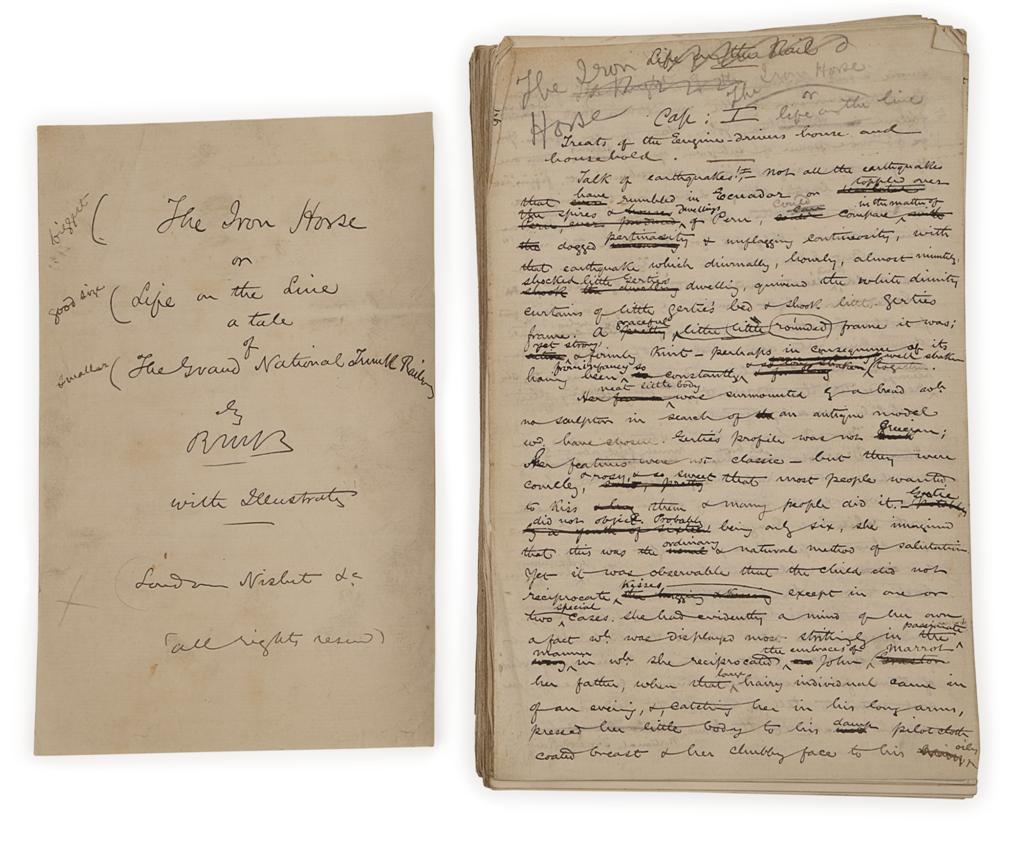 biggest
( The Iron Horse
or
good size
( Life on the Line
a tale
of
smaller
( The Grand National Trunk Railway
by
RMB
with Illustrats
London Nisbet &c
(all rights resend)
Life on the Rail
The Iron
The Iron Horse
Horse
or
Cap: I life on the line
Treats of the Engine-drivers house and
household.
Talk of earthquakes! – not all the earthquakes
that have rumbled in Ecuador or toppled over
the spires & dwellings of Peru, could compare in the matter of
dogged pertinacity & unflagging continuosity, with
that earthquake which diurnally, hourly, almost minutely,
shocked little Gertie's dwelling, quivered the white dimity
curtains of little Gertie's bed & shook little Gertie's
frame. A graceful little little rounded frame it was;
yet strong & firmly knit – perhaps in consequence of its
having been from infancy so constantly & well shaken together.
Her neat little body was surmounted by a head wh.
no sculptor in search of an antique model
wd. have chosen. Gertie's profile was not Grecian;
Her features were not classic – but they were
comely, & rosy, & so sweet that most people wanted
to kiss them & many people did it. Gertie
did not object. Probably, being only six, she imagined
that this was the ordinary & natural method of salutation.
Yet it was observable that the child did not
reciprocate kisses except in one or
two special cases. She had evidently a mind of her own
a fact wh. was displayed most strikingly in the passionate
manner in wh. she reciprocated the embraces of John Marrot
her father, when that large hairy individual came in
of an evening, &, catching her in his long arms,
pressed her little body to his damp pilotcloth-
coated breast & her chubby face to his oily